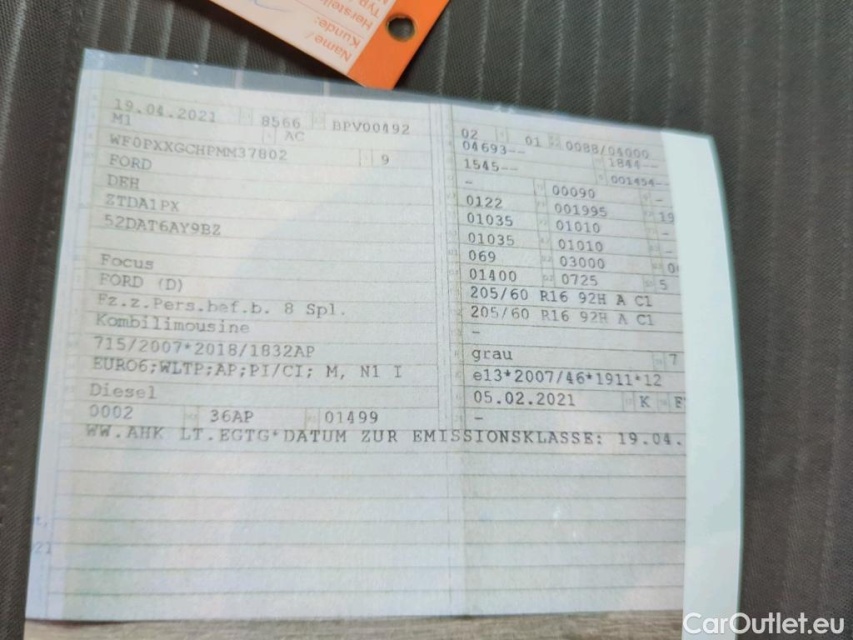 Name/
Kunde:
Herstell
Typ
19.04.2021 8566 BPV00492
M1 AC
WF0PXXGCHPMM37802 9
FORD
DEH
ZTDA1PX
52DAT6AY9BZ
Focus
FORD (D)
Fz.z.Pers.bef.b. 8 Spl.
Kombilimousine
715/2007*2018/1832AP
EURO6;WLTP;AP;PI/CI; M, N1 I
Diesel
0002 36AP 01499
02 01 0088/04000
04693-- 1844--
1545-- 001454--
- 00090 -
0122 001995 19
01035 01010 -
01035 01010 -
069 03000 0
01400 0725 5
205/60 R16 92H A C1
205/60 R16 92H A C1
-
grau 7
e13*2007/46*1911*12
05.02.2021 K
-
WW.AHK LT.EGTG*DATUM ZUR EMISSIONSKLASSE: 19.04.
CarOutlet.eu